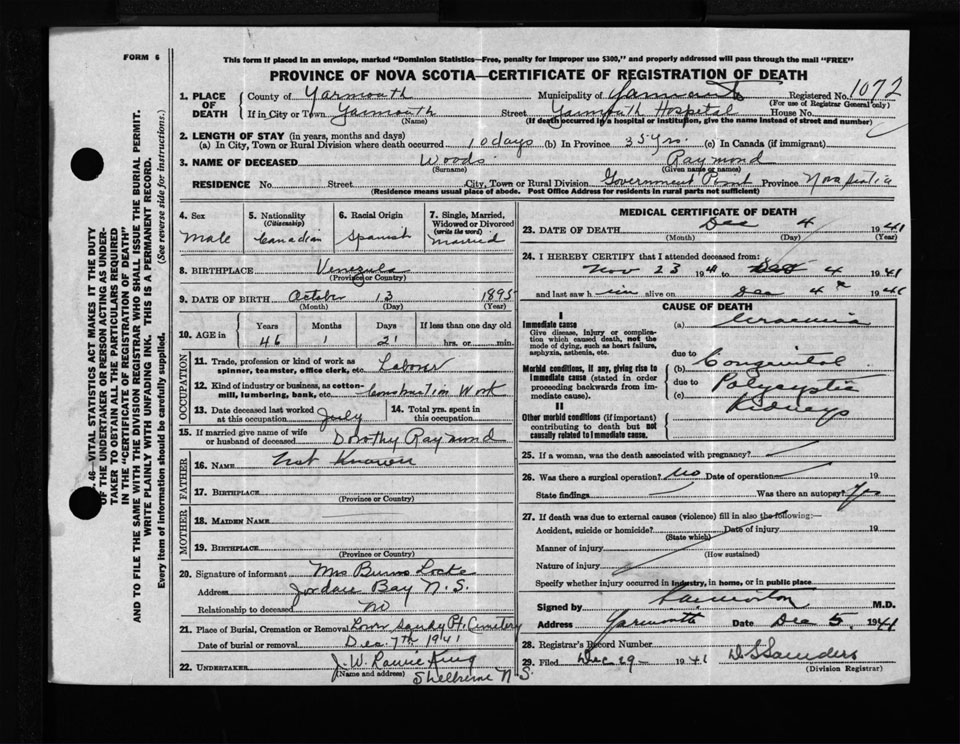 FORM 6
This form if placed in an envelope, marked "Dominion Statistics—Free, penalty for improper use $300," and properly addressed will pass through the mail "FREE"
PROVINCE OF NOVA SCOTIA—CERTIFICATE OF REGISTRATION OF DEATH
1. PLACE OF DEATH
County of Yarmouth Municipality of Yarmouth Registered No. 1072
(For use of Registrar General only)
If in City or Town Yarmouth Street Yarmouth Hospital House No.
(Name) (If death occurred in a hospital or institution, give the name instead of street and number)
2. LENGTH OF STAY (in years, months and days)
(a) In City, Town or Rural Division where death occurred 10 days (b) In Province 35 yrs. (c) In Canada (if immigrant)
3. NAME OF DECEASED Woods Raymond
(Surname) (Given name or names)
RESIDENCE No. Street City, Town or Rural Division Government Point Province Nova Scotia
(Residence means usual place of abode. Post Office Address for residents in rural parts not sufficient)
4. Sex Male
5. Nationality (Citizenship) Canadian
6. Racial Origin Spanish
7. Single, Married, Widowed or Divorced (write the word) Married
8. BIRTHPLACE Venezula
(Province or Country)
9. DATE OF BIRTH October 13 1895
(Month) (Day) (Year)
10. AGE in Years Months Days If less than one day old
46 1 21 hrs. or min.
OCCUPATION
11. Trade, profession or kind of work as spinner, teamster, office clerk, etc. Labour
12. Kind of industry or business, as cotton-mill, lumbering, bank, etc. Construction Work
13. Date deceased last worked at this occupation July
14. Total yrs. spent in this occupation
15. If married give name of wife or husband of deceased Dorothy Raymond
FATHER
16. NAME Not Known
17. BIRTHPLACE
(Province or Country)
MOTHER
18. MAIDEN NAME
19. BIRTHPLACE
(Province or Country)
20. Signature of informant Mrs Burns Locke
Address Jordan Bay N.S.
Relationship to deceased No
21. Place of Burial, Cremation or Removal Lower Sandy Pt. Cemetery
Date of burial or removal Dec. 7th 1941
22. UNDERTAKER J. W. King
(Name and address) Shelburne N.S.
MEDICAL CERTIFICATE OF DEATH
23. DATE OF DEATH Dec 4 1941
(Month) (Day) (Year)
24. I HEREBY CERTIFY that I attended deceased from:
Nov 23 1941 to Dec 4 1941
and last saw him alive on Dec 4th 1941
CAUSE OF DEATH
I
Immediate cause (a) Uraemia
Give disease, injury or complication which caused death, not the mode of dying, such as heart failure, asphyxia, asthenia, etc.
due to
Morbid conditions, if any, giving rise to immediate cause (stated in order proceeding backwards from immediate cause).
(b) Congenital
due to Polycystic
(c) Kidneys
II
Other morbid conditions (if important) contributing to death but not causally related to immediate cause.
25. If a woman, was the death associated with pregnancy?
26. Was there a surgical operation? No Date of operation 19
State findings Was there an autopsy? Yes
27. If death was due to external causes (violence) fill in also the following:—
Accident, suicide or homicide? Date of injury 19
(State which)
Manner of injury
(How sustained)
Nature of injury
Specify whether injury occurred in industry, in home, or in public place
Signed by M.D.
Address Yarmouth Date Dec 5, 1941
28. Registrar's Record Number
29. Filed Dec 29 1941 Saunders
(Division Registrar)
46—VITAL STATISTICS ACT MAKES IT THE DUTY
OF THE UNDERTAKER OR PERSON ACTING AS UNDER-
TAKER TO OBTAIN ALL THE PARTICULARS REQUIRED
IN THE "CERTIFICATE OF REGISTRATION OF DEATH"
AND TO FILE THE SAME WITH THE DIVISION REGISTRAR WHO SHALL ISSUE THE BURIAL PERMIT.
WRITE PLAINLY WITH UNFADING INK. THIS IS A PERMANENT RECORD.
Every item of information should be carefully supplied. (See reverse side for instructions.)